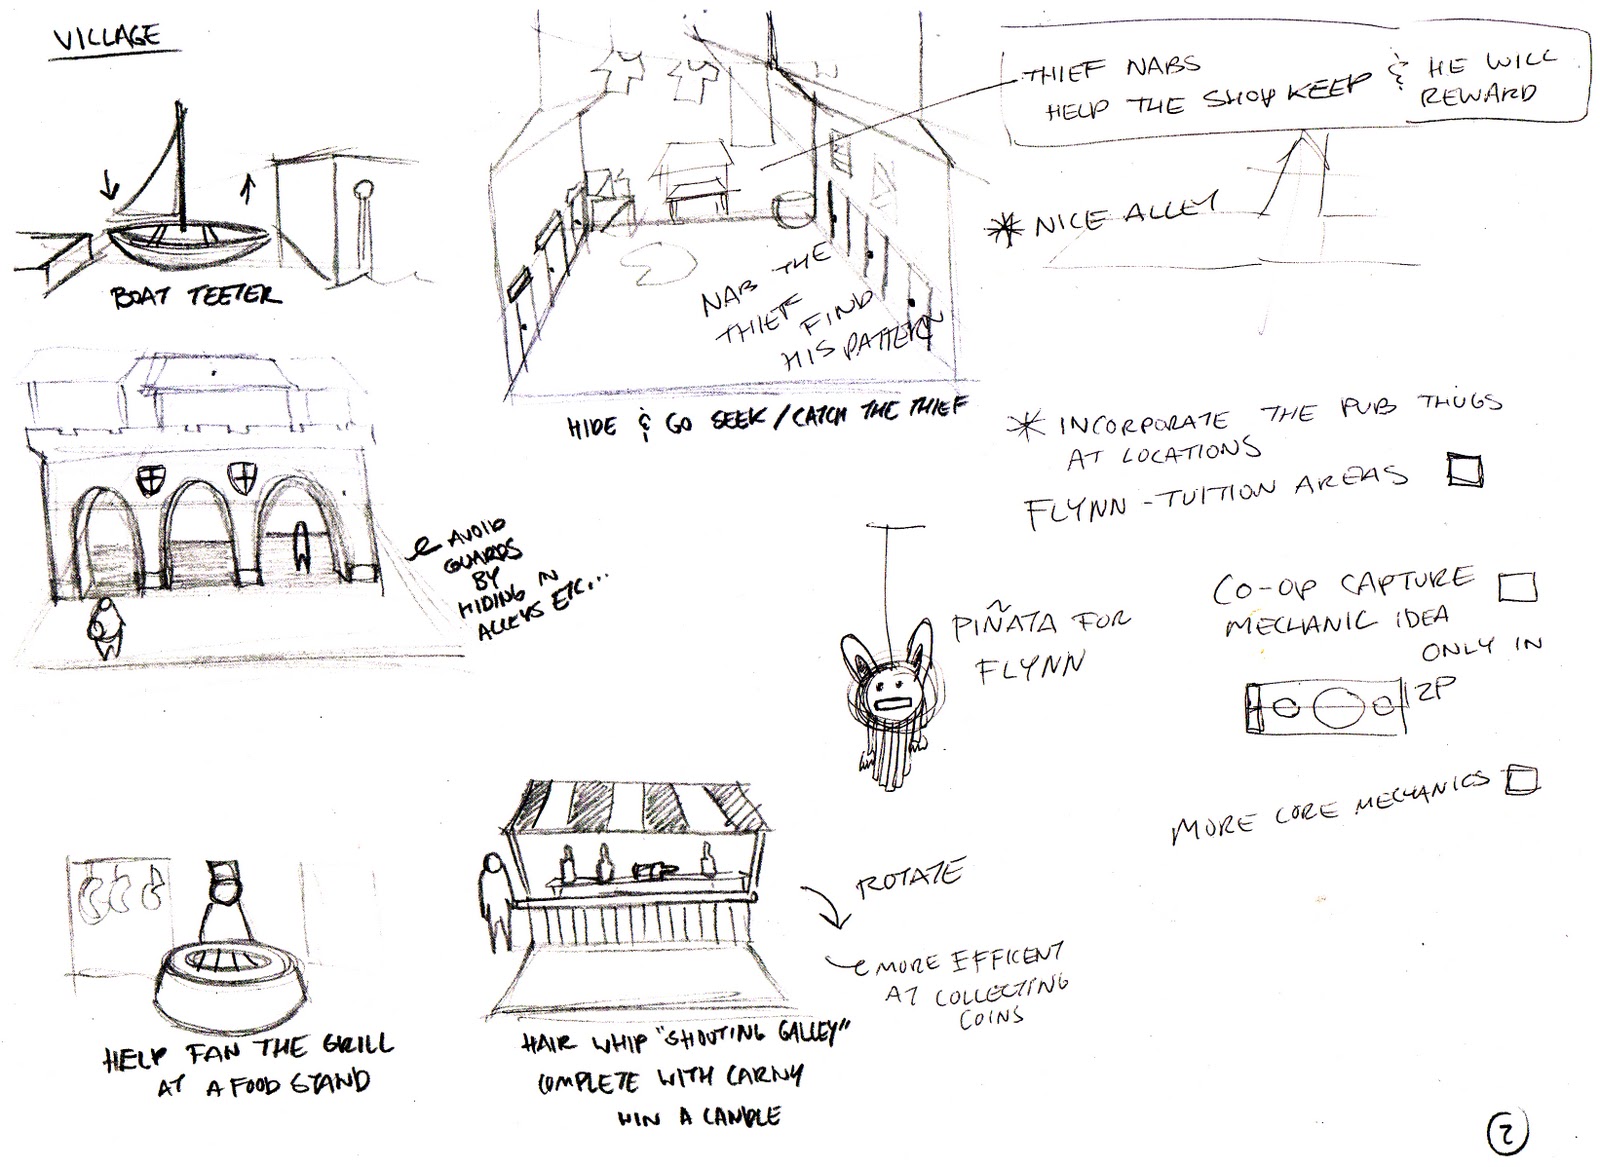 VILLAGE
BOAT TEETER
THIEF NABS
HELP THE SHOP KEEP & HE WILL
REWARD
* NICE ALLEY
NAB THE
THIEF FIND
HIS PATTERN
HIDE & GO SEEK / CATCH THE THIEF
* INCORPORATE THE PUB THUGS
AT LOCATIONS
FLYNN-TUITION AREAS
AVOID
GUARDS
BY
HIDING IN
ALLEYS ETC...
PIÑATA FOR
FLYNN
CO-OP CAPTURE
MECHANIC IDEA
ONLY IN
2P
MORE CORE MECHANICS
ROTATE
MORE EFFICENT
AT COLLECTING
COINS
HELP FAN THE GRILL
AT A FOOD STAND
HAIR WHIP "SHOOTING GALLEY"
COMPLETE WITH CARNY
WIN A CANDLE
2